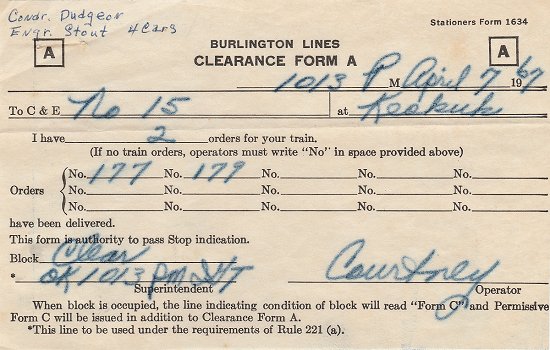 Condr. Dudgeon
Engr. Stout 4 Cars
Stationers Form 1634
A BURLINGTON LINES A
CLEARANCE FORM A
1013 P M April 7 1967
To C & E No 15 at Keokuk
I have 2 orders for your train.
(If no train orders, operators must write "No" in space provided above)
No. 177 No. 179 No. No. No.
Orders No. No. No. No. No.
No. No. No. No. No.
have been delivered.
This form is authority to pass Stop indication.
Block Clear
* OK 1013 PM Courtney
Superintendent Operator
When block is occupied, the line indicating condition of block will read "Form C" and Permissive
Form C will be issued in addition to Clearance Form A.
*This line to be used under the requirements of Rule 221 (a).